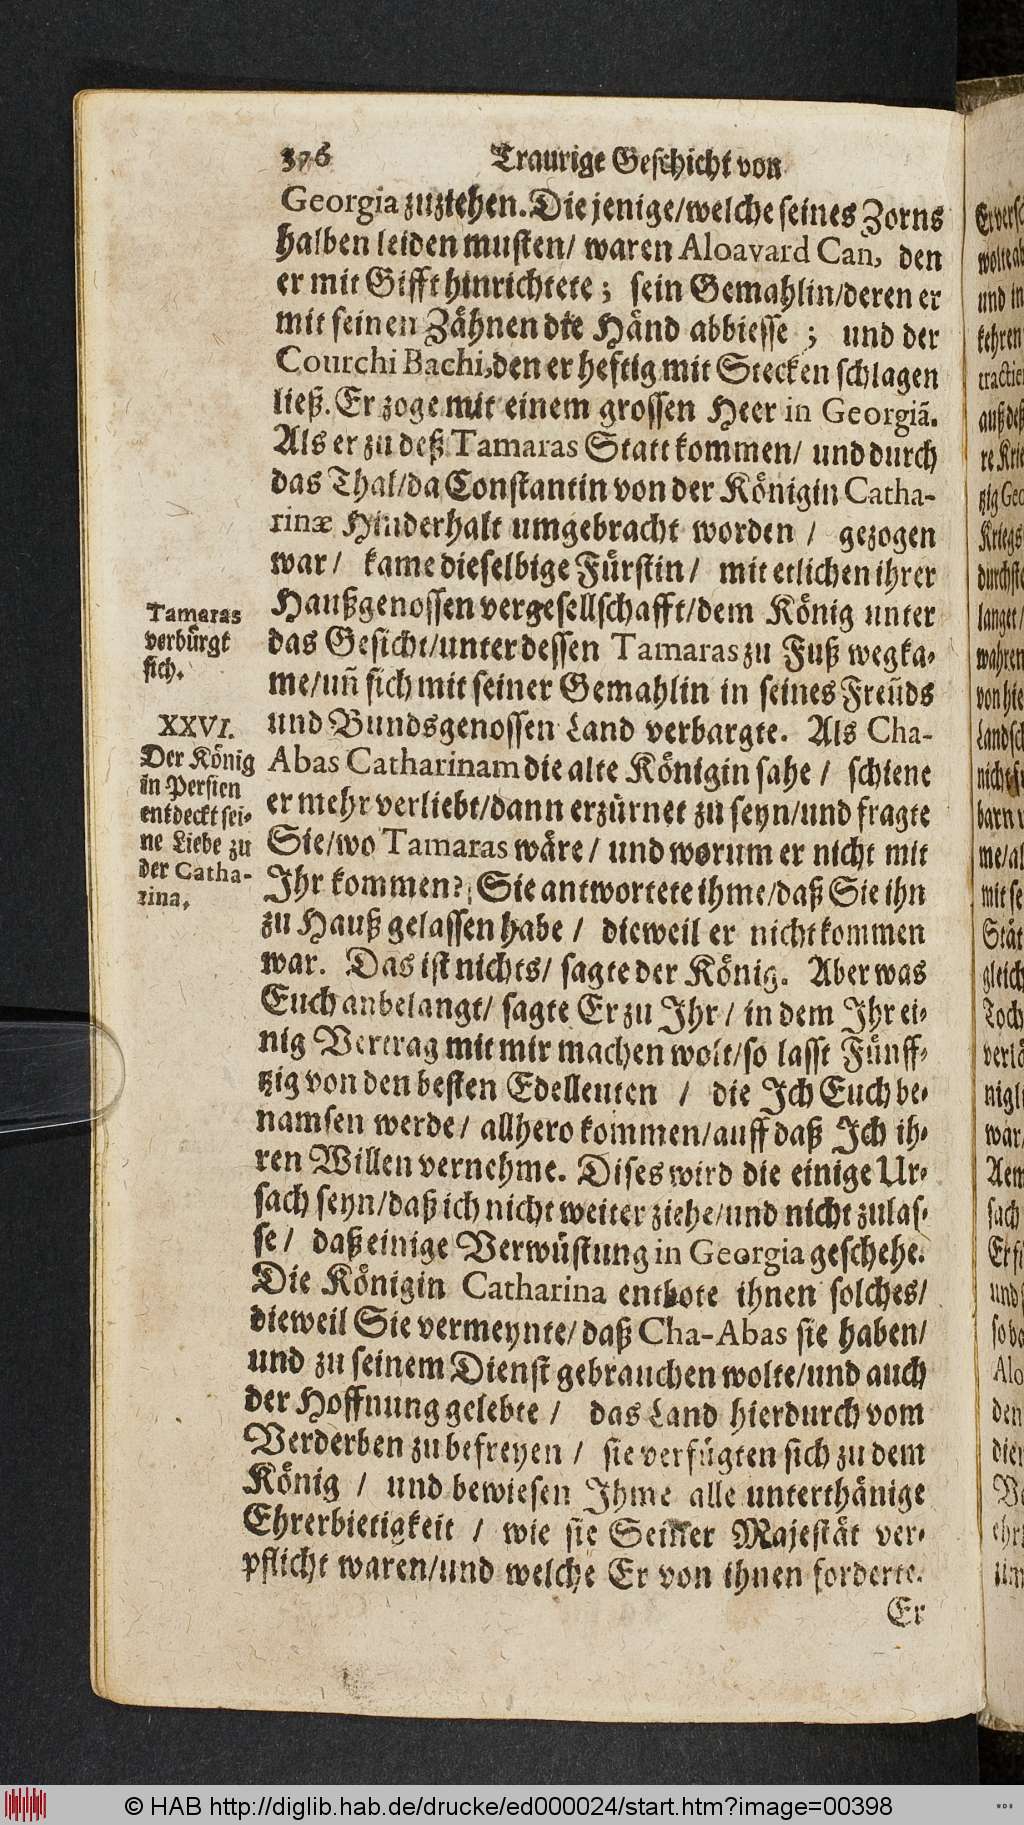 376 Traurige Geschicht von
Georgia zuziehen. Die jenige/welche seines Zorns
halben leiden musten/ waren Aloavard Can, den
er mit Gifft hinrichtete; sein Gemahlin/deren er
mit seinen Zähnen die Händ abbiesse; und der
Courchi Bachi, den er heftig mit Stecken schlagen
ließ. Er zoge mit einem grossen Heer in Georgiã.
Als er zu deß Tamaras Statt kommen/ und durch
das Thal/da Constantin von der Königin Catha-
rinæ Hinderhalt umgebracht worden / gezogen
war/ kame dieselbige Fürstin/ mit etlichen ihrer
Haußgenossen vergesellschafft/dem König unter
das Gesicht/unterdessen Tamaras zu Fuß wegka-
me/uñ sich mit seiner Gemahlin in seines Freũds
und Bundsgenossen Land verbargte. Als Cha-
Abas Catharinam die alte Königin sahe / schiene
er mehr verliebt/dann erzürnet zu seyn/und fragte
Sie/wo Tamaras wäre / und worum er nicht mit
Ihr kommen? Sie antwortete ihme/daß Sie ihn
zu Hauß gelassen habe / dieweil er nicht kommen
war. Das ist nichts/ sagte der König. Aber was
Euch anbelangt/ sagte Er zu Ihr / in dem Ihr ei-
nig Vertrag mit mir machen wolt/so lasst Fünff-
tzig von den besten Edelleuten / die Ich Euch be-
namsen werde/ allhero kommen/auff daß Ich ih-
ren Willen vernehme. Dises wird die einige Ur-
sach seyn/daß ich nicht weiter ziehe/und nicht zulas-
se / daß einige Verwüstung in Georgia geschehe.
Die Königin Catharina entbote ihnen solches/
dieweil Sie vermeynte/ daß Cha-Abas sie haben/
und zu seinem Dienst gebrauchen wolte/und auch
der Hoffnung gelebte / das Land hierdurch vom
Verderben zu befreyen / sie verfügten sich zu dem
König / und bewiesen Ihme alle unterthänige
Ehrerbietigkeit / wie sie Seiner Majestät ver-
pflicht waren/und welche Er von ihnen forderte.
Er
Tamaras
verbürgt
sich.
XXVI.
Der König
in Persien
entdeckt sei-
ne Liebe zu
der Catha-
rina.
© HAB http://diglib.hab.de/drucke/ed000024/start.htm?image=00398